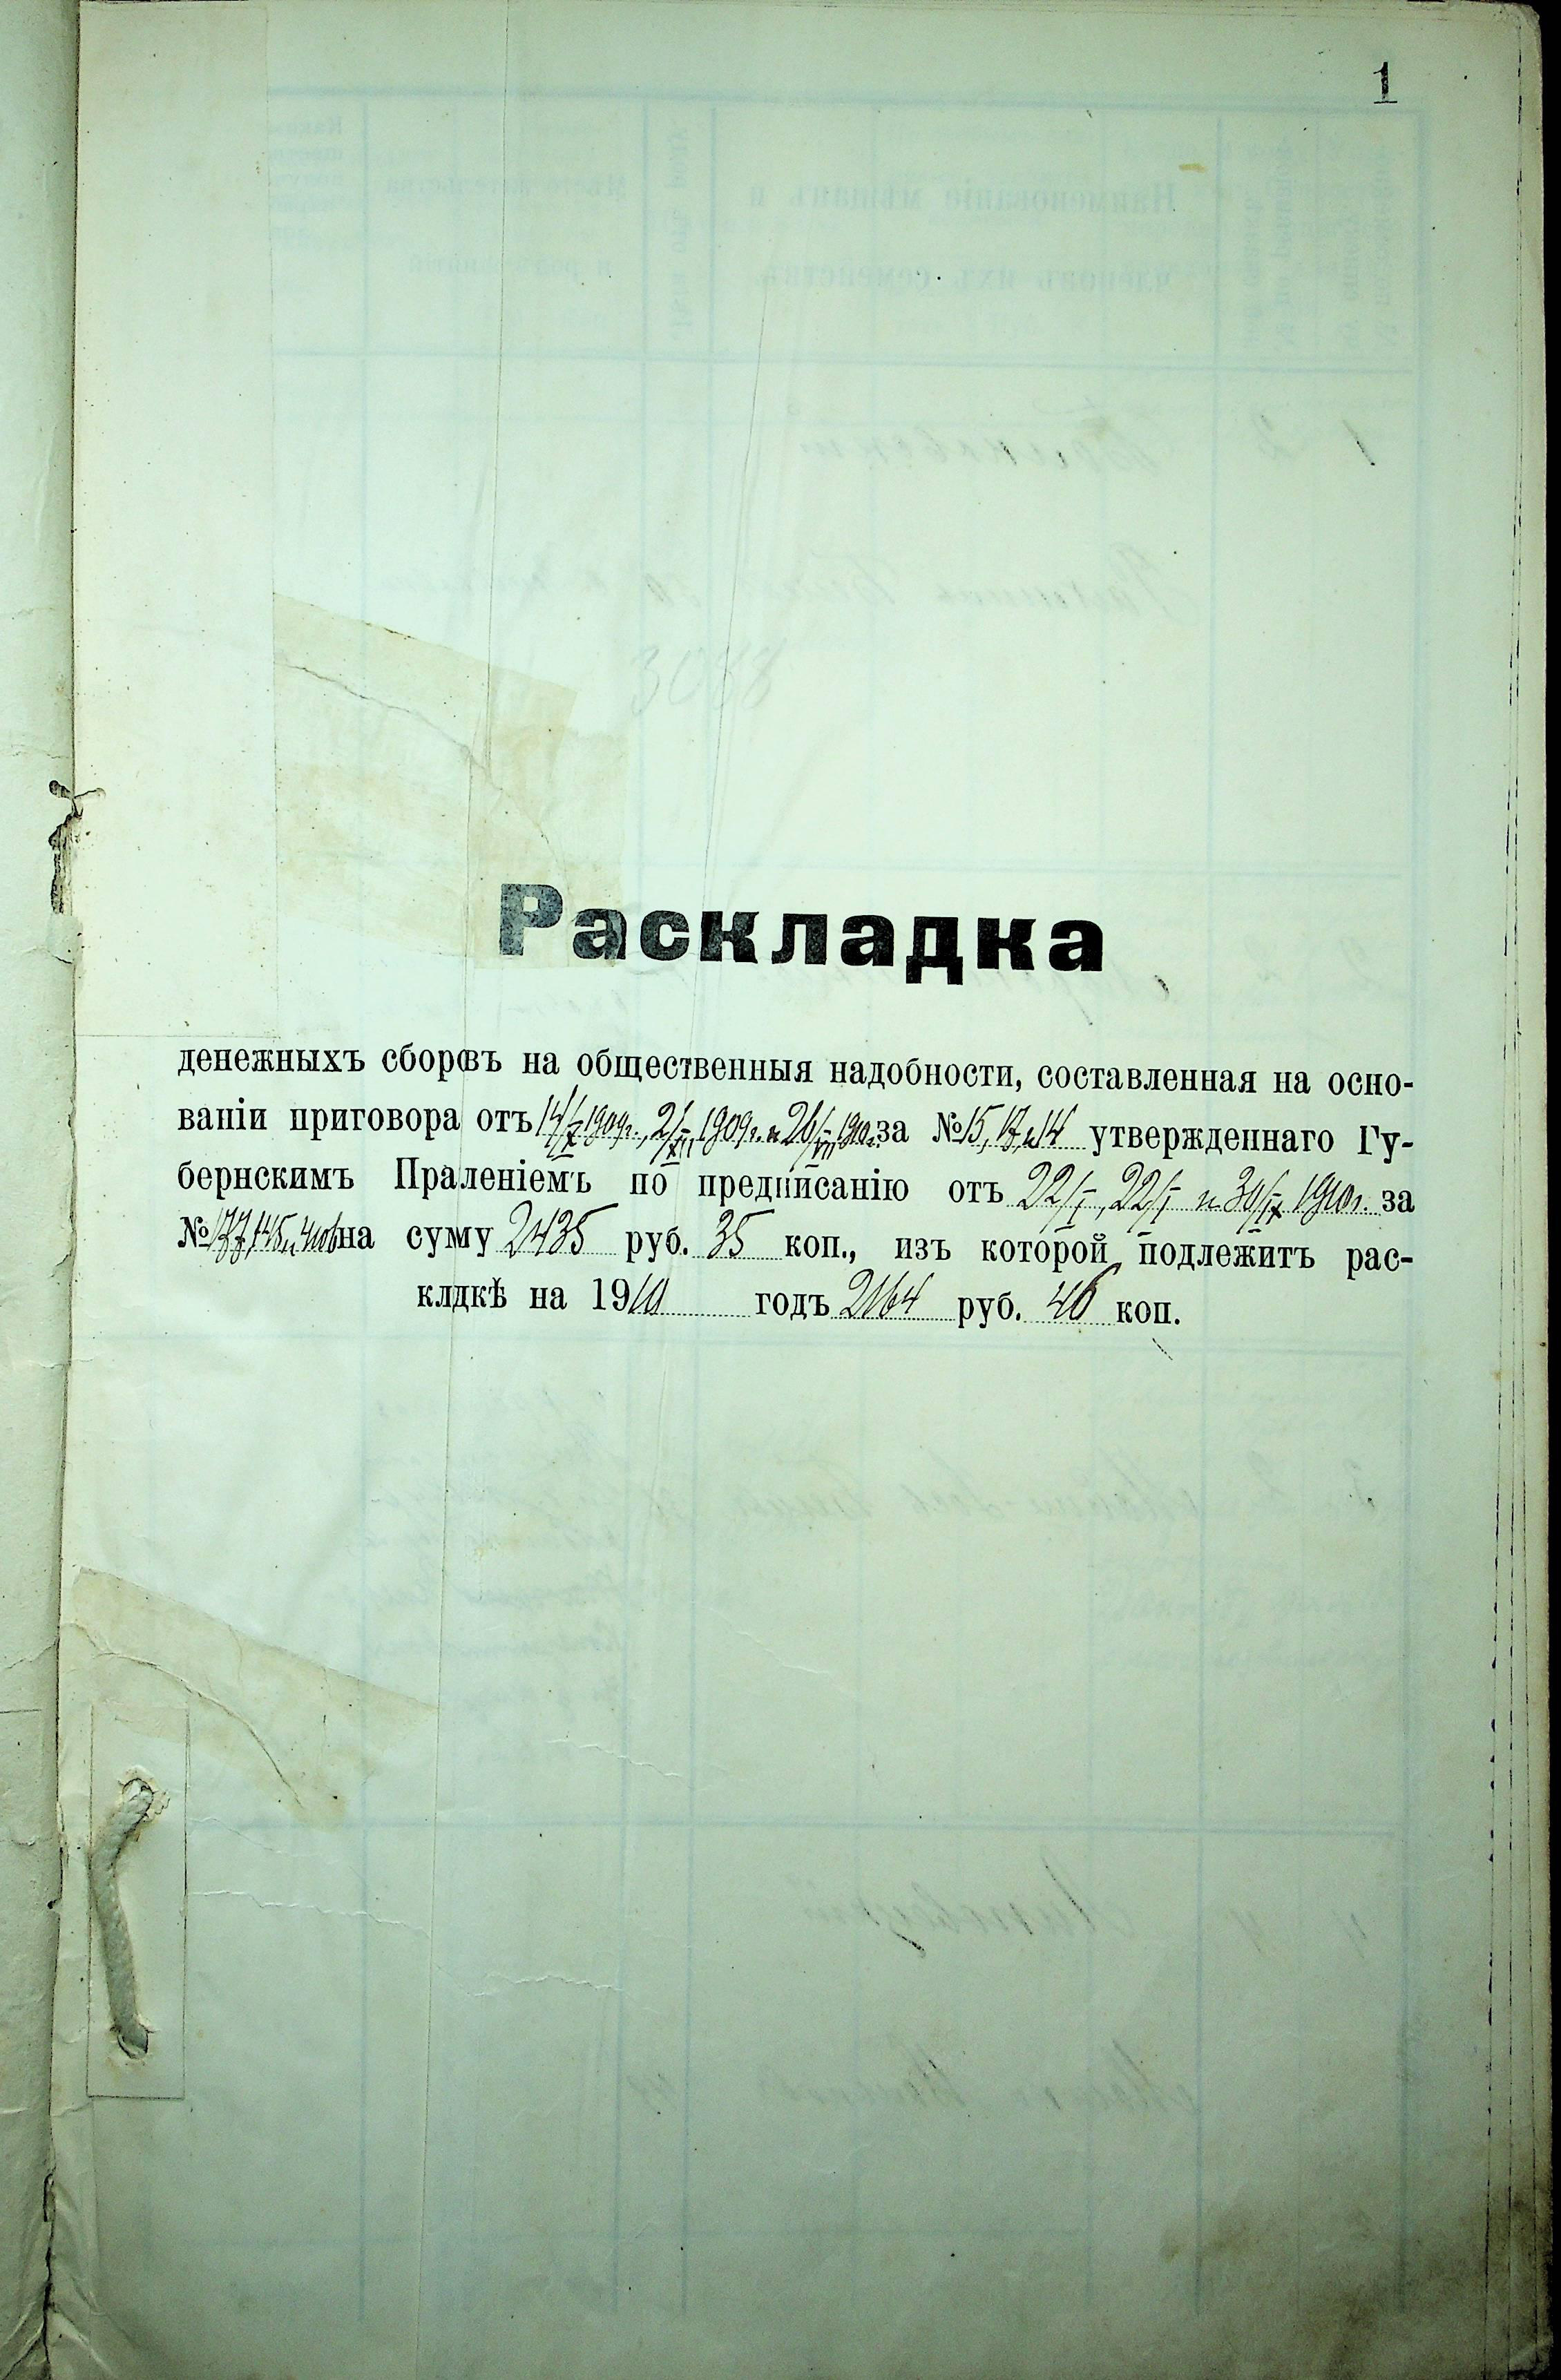 1
3088
Раскладка
денежныхъ сборовъ на общественныя надобности, составленная на осно-
ваніи приговора отъ 14/X 1909г., 2/XII 1909г. и 26/VII 1910г. за № 15, 17, и 14 утвержденнаго Гу-
бернскимъ Праленіемъ по предписанію отъ 22/I, 22/I и 30/IX 1910г. за
№ 177, 145 и на суму 2435 руб. 35 коп., изъ которой подлежитъ рас-
клдкѣ на 1910 годъ 2164 руб. 46 коп.